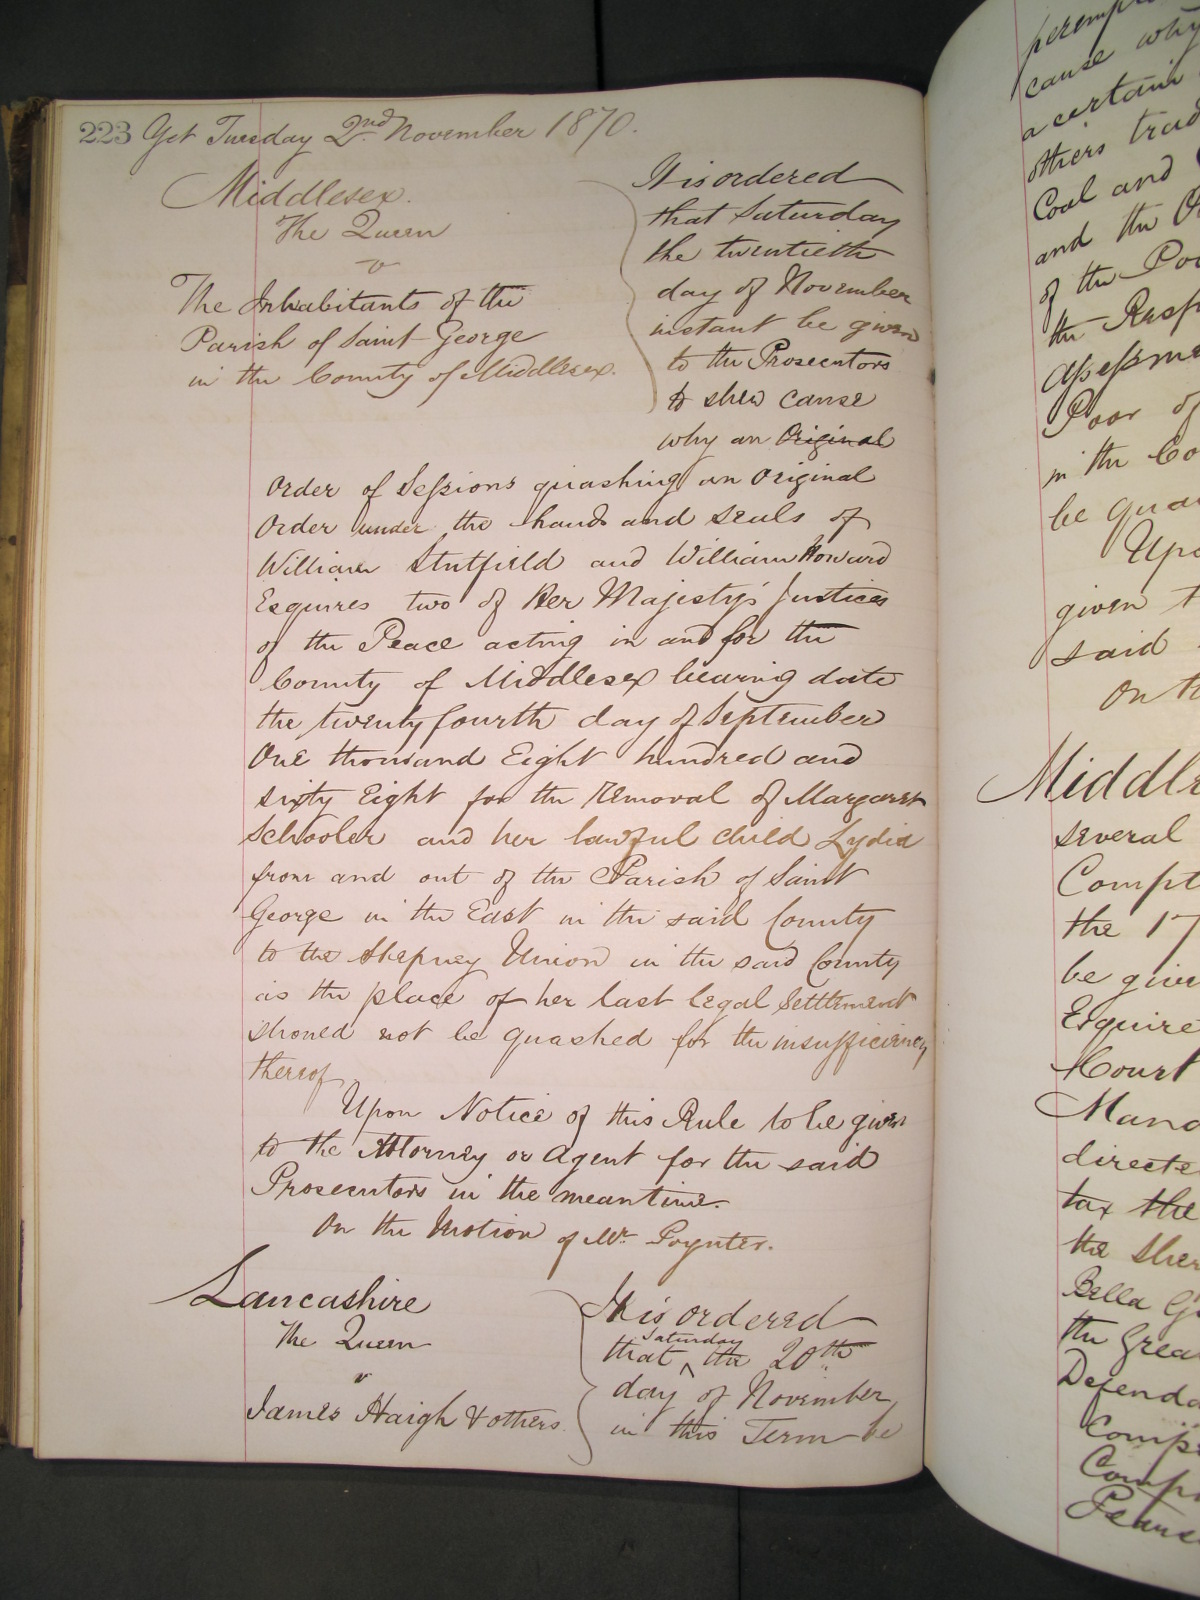 223 Yet Tuesday 2nd November 1870.
Middlesex.
The Queen
v
The Inhabitants of the
Parish of Saint George
in the County of Middlesex.
It is ordered
that Saturday
the twentieth
day of November
instant be given
to the Prosecutors
to shew cause
why an Original
Order of Sessions quashing an Original
Order under the hands and seals of
William Stutfield and William Howard
Esquires two of Her Majesty's Justices
of the Peace acting in and for the
County of Middlesex bearing date
the twenty fourth day of September
One thousand Eight hundred and
sixty Eight for the Removal of Margaret
Schooler and her lawful child Lydia
from and out of the Parish of Saint
George in the East in the said County
to the Stepney Union in the said County
as the place of her last legal Settlement
should not be quashed for the insufficiency
thereof
Upon Notice of this Rule to be given
to the Attorney or Agent for the said
Prosecutors in the meantime.
On the Motion of Mr. Poynter.
Lancashire
The Queen
v
James Haigh & others.
It is ordered
that Saturday the 20th
day of November
in this Term be
cause why
a certain
others
Coal and
and the
of the
the
Poor of
in the
be
given
said
On
several
the 17
be
Esquire
Court
tax the
the
Bella
the